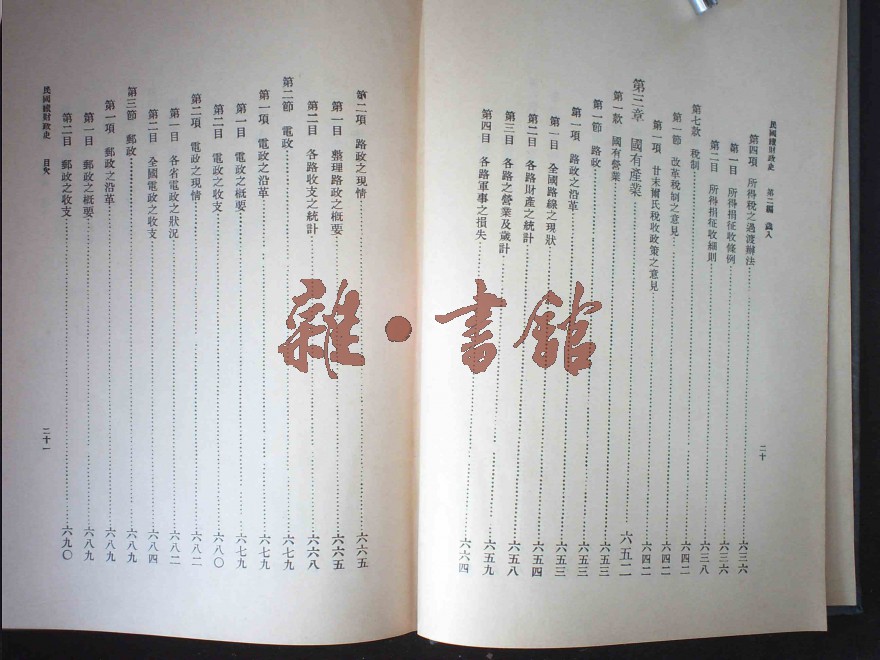 民國續財政史 第二編 歲入
二十
第四項 所得稅之過渡辦法 六三六
第一目 所得捐征收條例 六三六
第二目 所得捐征收細則 六三八
第七款 稅制 六四二
第一節 改革稅制之意見 六四二
第一項 甘末爾氏稅收政策之意見 六四二
第三章 國有產業 六五二
第一款 國有營業 六五三
第一節 路政 六五三
第一項 路政之沿革 六五三
第一目 全國路線之現狀 六五三
第二目 各路財產之統計 六五四
第三目 各路之營業及歲計 六五八
第四目 各路軍事之損失 六五九
六六四
第二項 路政之現情 六六五
第一目 整理路政之概要 六六五
第二目 各路收支之統計 六六八
第二節 電政 六七九
第一項 電政之沿革 六七九
第一目 電政之概要 六七九
第二目 電政之收支 六八〇
第二項 電政之現情 六八二
第一目 各省電政之狀況 六八二
第二目 全國電政之收支 六八四
第三節 郵政 六八九
第一項 郵政之沿革 六八九
第一目 郵政之概要 六八九
第二目 郵政之收支 六九〇
民國續財政史 目次
二十一
雜·書館